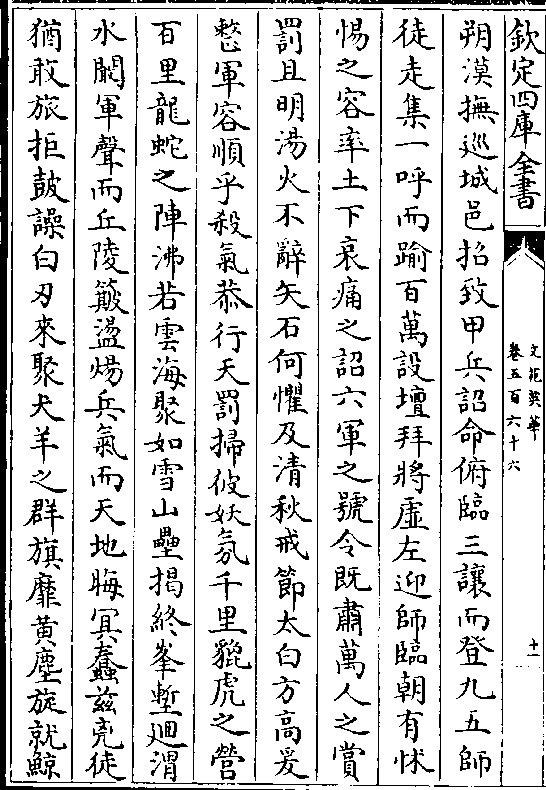 欽定四庫全書
文苑英華
卷五百六十六
十一
朔漠撫巡城邑招致甲兵詔命俯臨三讓而登九五師
徒走集一呼而踰百萬設壇拜將虛左迎師臨朝有怵
惕之容率土下哀痛之詔六軍之號令既肅萬人之賞
罰且明湯火不辭矢石何懼及清秋戒節太白方高爰
整軍容順乎殺氣恭行天罰掃彼妖氛千里貔虎之營
百里龍蛇之陣沸若雲海聚如雪山壘揭終峯塹廻渭
水闞軍聲而丘陵簸盪煬兵氣而天地晦冥蠢兹兇徒
猶敢旅拒鼓譟白刃來聚犬羊之群旗靡黄塵旋就鯨